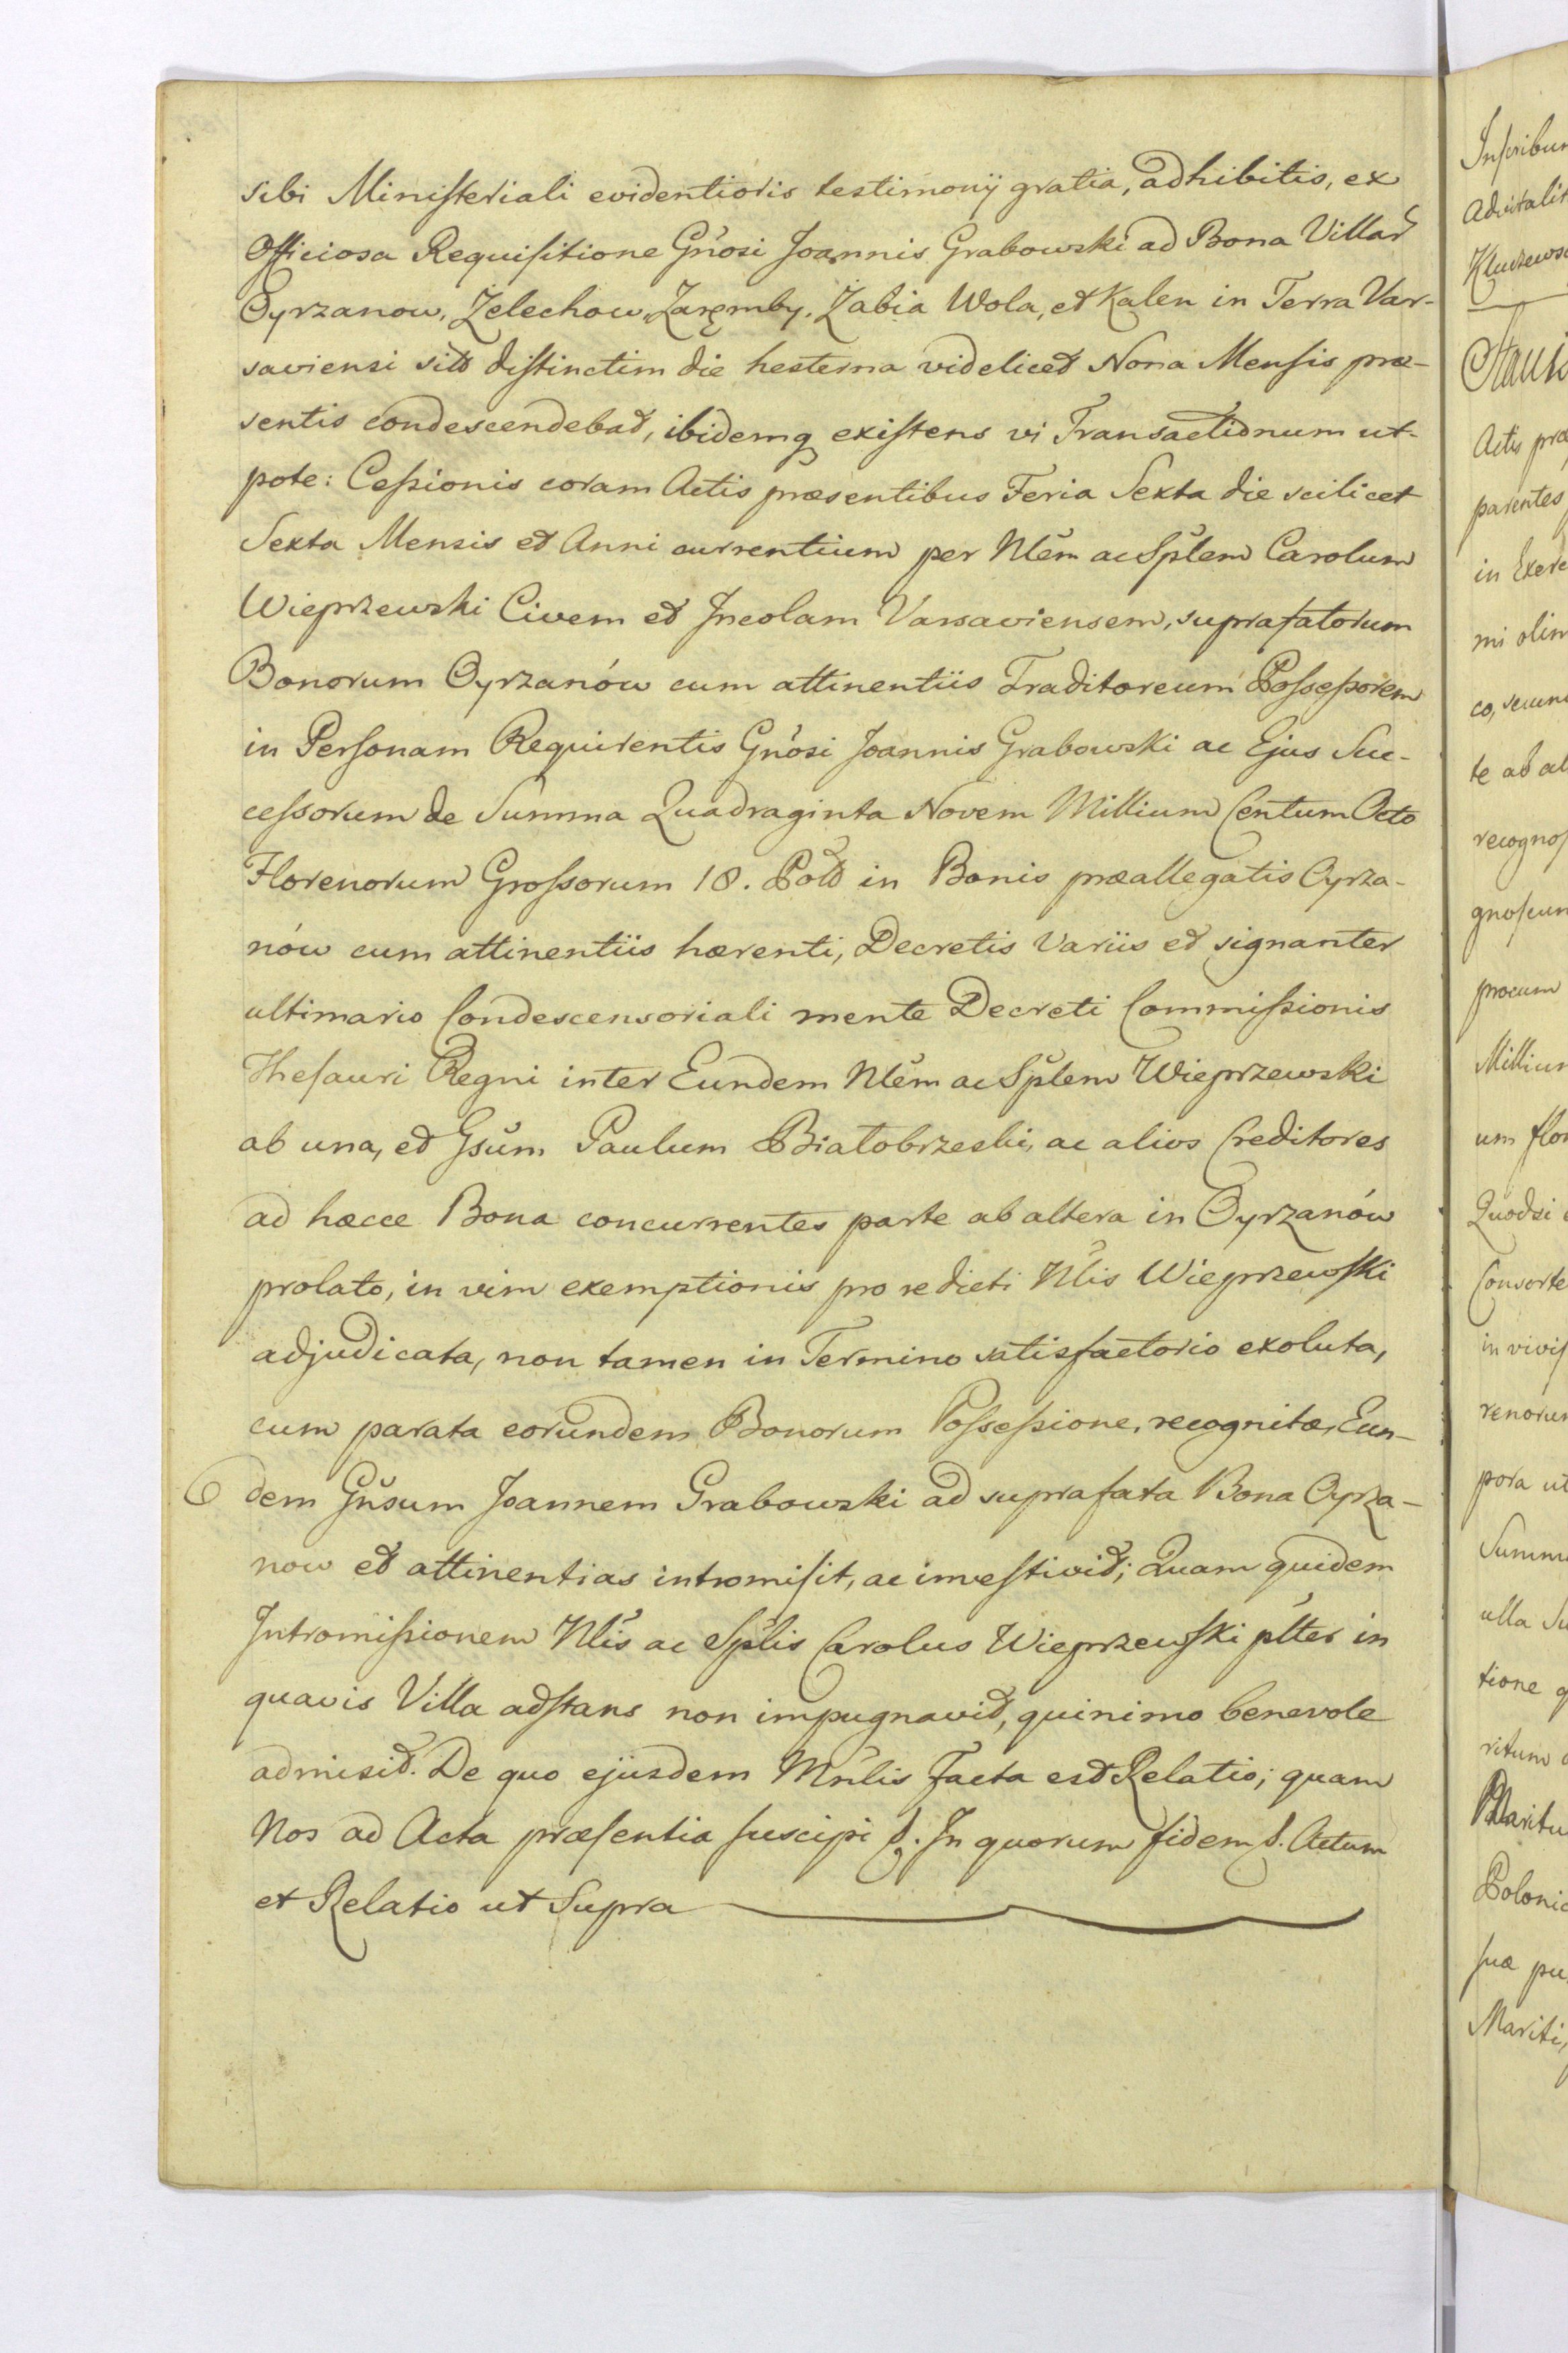 sibi Ministeriali evidentioris testimonij gratia, adhibitis, ex
Officiosa Requisitione Gnosi Joannis Grabowski ad Bona Villar
Oyrzanow, Zelechow, Zaręmby, Żabia Wola, et Kalen in Terra Var-
saviensi sita distinctim die hesterna videlicet Nona Mensis præ-
sentis condescendebat, ibidemq existens vi Transactionum ut-
pote: Cessionis coram Actis præsentibus Feria Sexta die scilicet
Sexta Mensis et Anni currentium per Nlem ac Splem Carolum
Wieprzewski Civem et Incolam Varsaviensem, suprafatorum
Bonorum Oyrzanów cum attinentiis Traditoreum Possessorem
in Personam Requirentis Gnosi Joannis Grabowski ac Ejus Suc-
cessorum de Summa Quadraginta Novem Millium Centum Octo
Florenorum Grossorum 18. Pol in Bonis præallegatis Oyrza-
nów cum attinentiis hærenti, Decretis Variis et signanter
ultimario Condescensoriali mente Decreti Commissionis
Thesauri Regni inter Eundem Nlem ac Splem Wieprzewski
ab una, et Gsum Paulum Białobrzeski, ac alios Creditores
ad hæcce Bona concurrentes parte ab altera in Oyrzanów
prolato, in vim exemptionis pro se dicti Nlis Wieprzewski
adjudicata, non tamen in Termino satisfactorio exoluta,
cum parata eorundem Bonorum Possessione, recognitæ, Eun-
dem Gnsum Joannem Grabowski ad suprafata Bona Oyrza-
now et attinentias intromisit, ac investivit; Quam quidem
Intromissionem Nlis ac Splis Carolus Wieprzewski plter in
quavis Villa adstans non impugnavit, quinimo benevole
admisit. De quo ejusdem Mnlis facta est Relatio; quam
Nos ad Acta præsentia suscipi &. In quorum fidem &. Actum
et Relatio ut Supra
Inscribun
Advitalit
Kluczewsc
Actis præ
parentes
in Exerc
mi olim
co, secun
te ab al
recognos
gnoscun
procum
Millium
um flor
Quodsi
Consorte
in vivis
renorum
pora ut
Summ
ulla Su
tione q
ritum
Maritu
Polonic
suæ pu
Mariti,